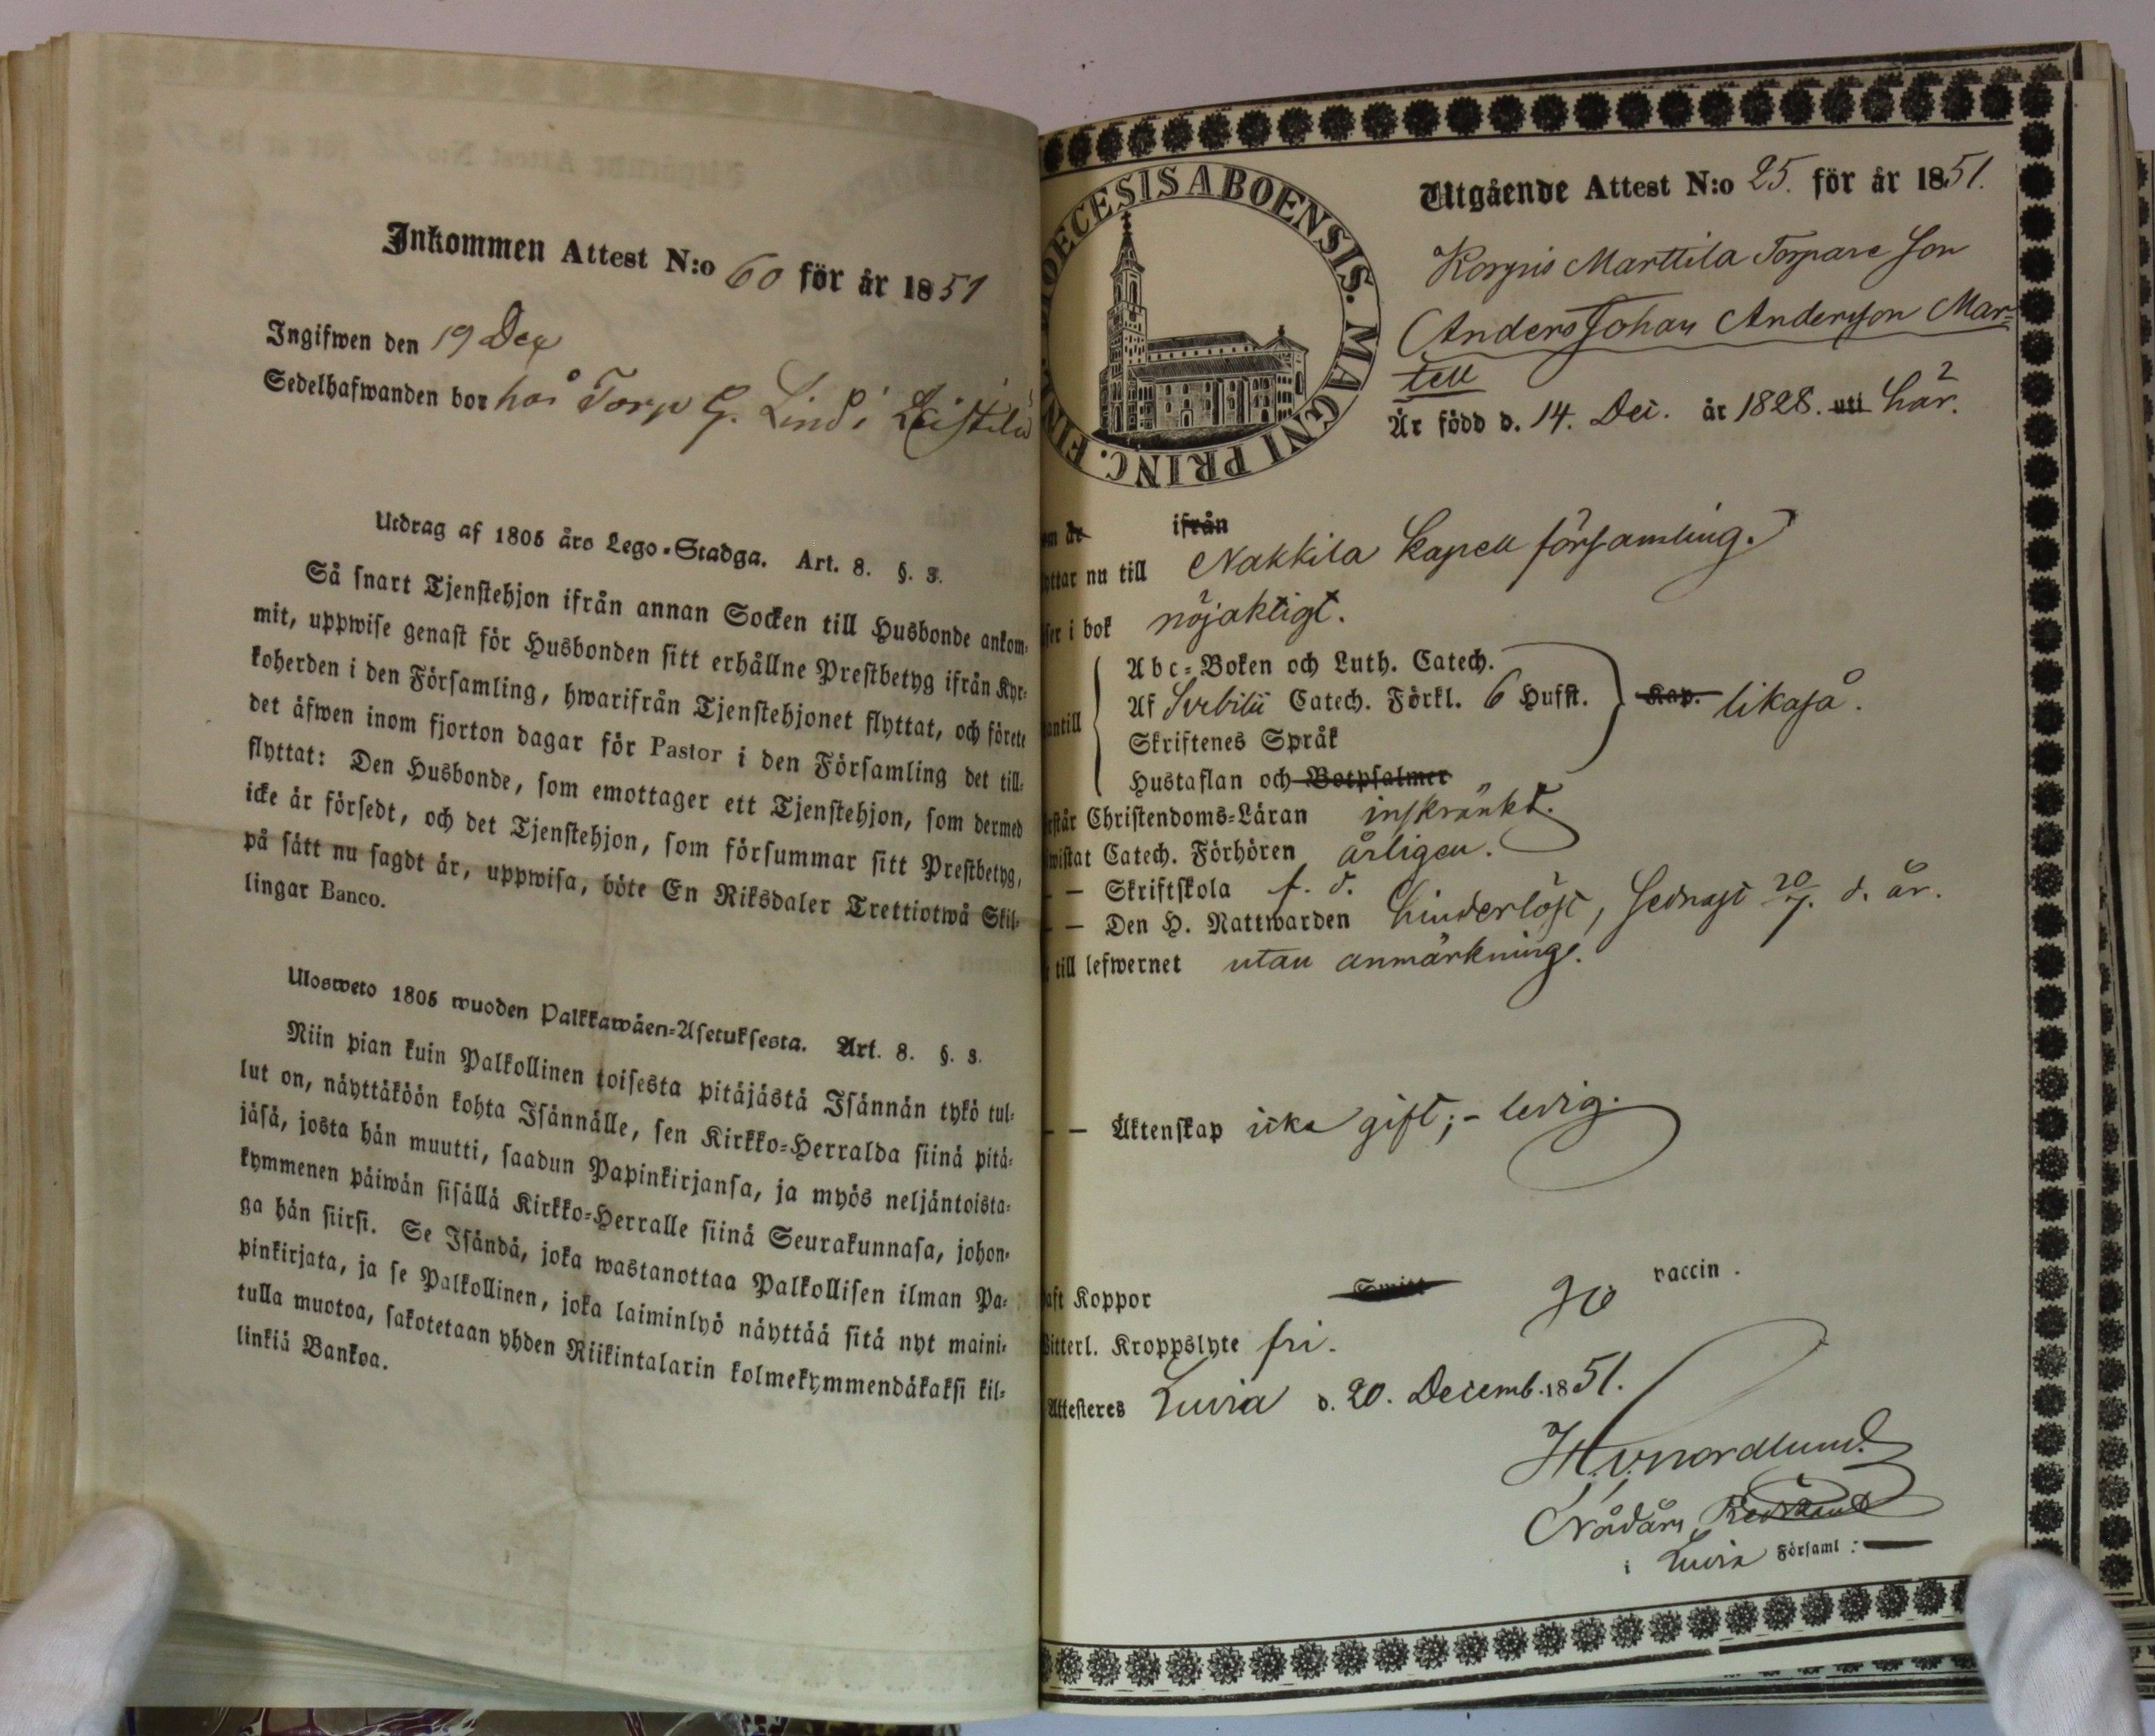 Inkommen Attest N:o 60 för år 1851
Ingifwen den 19 Dec
Sedelhafwanden bor hos Torp G. Lind i Leistilä
Utdrag af 1805 års Lego-Stadga. Art. 8. §. 3.
Så snart Tjenstehjon ifrån annan Socken till Husbonde ankom-
mit, uppwise genast för Husbonden sitt erhållne Prestbetyg ifrån Kyr-
koherden i den Församling, hwarifrån Tjenstehjonet flyttat, och förete
det äfwen inom fjorton dagar för Pastor i den Församling det till-
flyttat: Den Husbonde, som emottager ett Tjenstehjon, som dermed
icke är försedt, och det Tjenstehjon, som försummar sitt Prestbetyg,
på sätt nu sagdt är, uppwisa, böte En Riksdaler Trettiotwå Skil-
lingar Banco.
Ulosweto 1805 wuoden Palkkawäen-Asetuksesta. Art. 8. §. 3.
Niin pian kuin Palkollinen toisesta pitäjästä Isännän tykö tul-
lut on, näyttäköön kohta Isännälle, sen Kirkko-Herralda siinä pitä-
jäsä, josta hän muutti, saadun Papinkirjansa, ja myös neljäntoista-
kymmenen päiwän sisällä Kirkko-Herralle siinä Seurakunnasa, johon-
ga hän siirsi. Se Isändä, joka wastanottaa Palkollisen ilman Pa-
pinkirjata, ja se Palkollinen, joka laiminlyö näyttää sitä nyt maini-
tulla muotoa, sakotetaan yhden Riikintalarin kolmekymmendäkaksi kil-
linkiä Bankoa.
DIOECESIS ABOENSIS. MAGNI PRINC. FINL.
Utgående Attest N:o 25. för år 1851.
Korpus Marttila Torpare son
Anders Johan Andersson Mar-
tell
Är född d. 14. Dec. år 1828. uti här.
2
om är ifrån
yttar nu till Nakkila Kapell församling.
ser i bok nöjaktigt.
Abc-Boken och Luth. Catech.
antill Af Svebilii Catech. Förkl. 6 Hufst. Kap. likaså.
Skriftenes Språk
Hustaflan och Botpsalmer
rstår Christendoms-Läran inskränkt.
wistat Catech. Förhören årligen.
— — Skriftskola f. d.
— — Den H. Nattwarden hinderlöst, sednast 20/7. d. år.
till lefwernet utan anmärkning.
— — Äktenskap icke gift; – ledig.
aft Koppor vaccin.
Witterl. Kroppslyte fri.
Attesteres Luvia d. 20. Decemb. 1851.
H. V. Nordlund
Nådårs
i Luvia Församl: